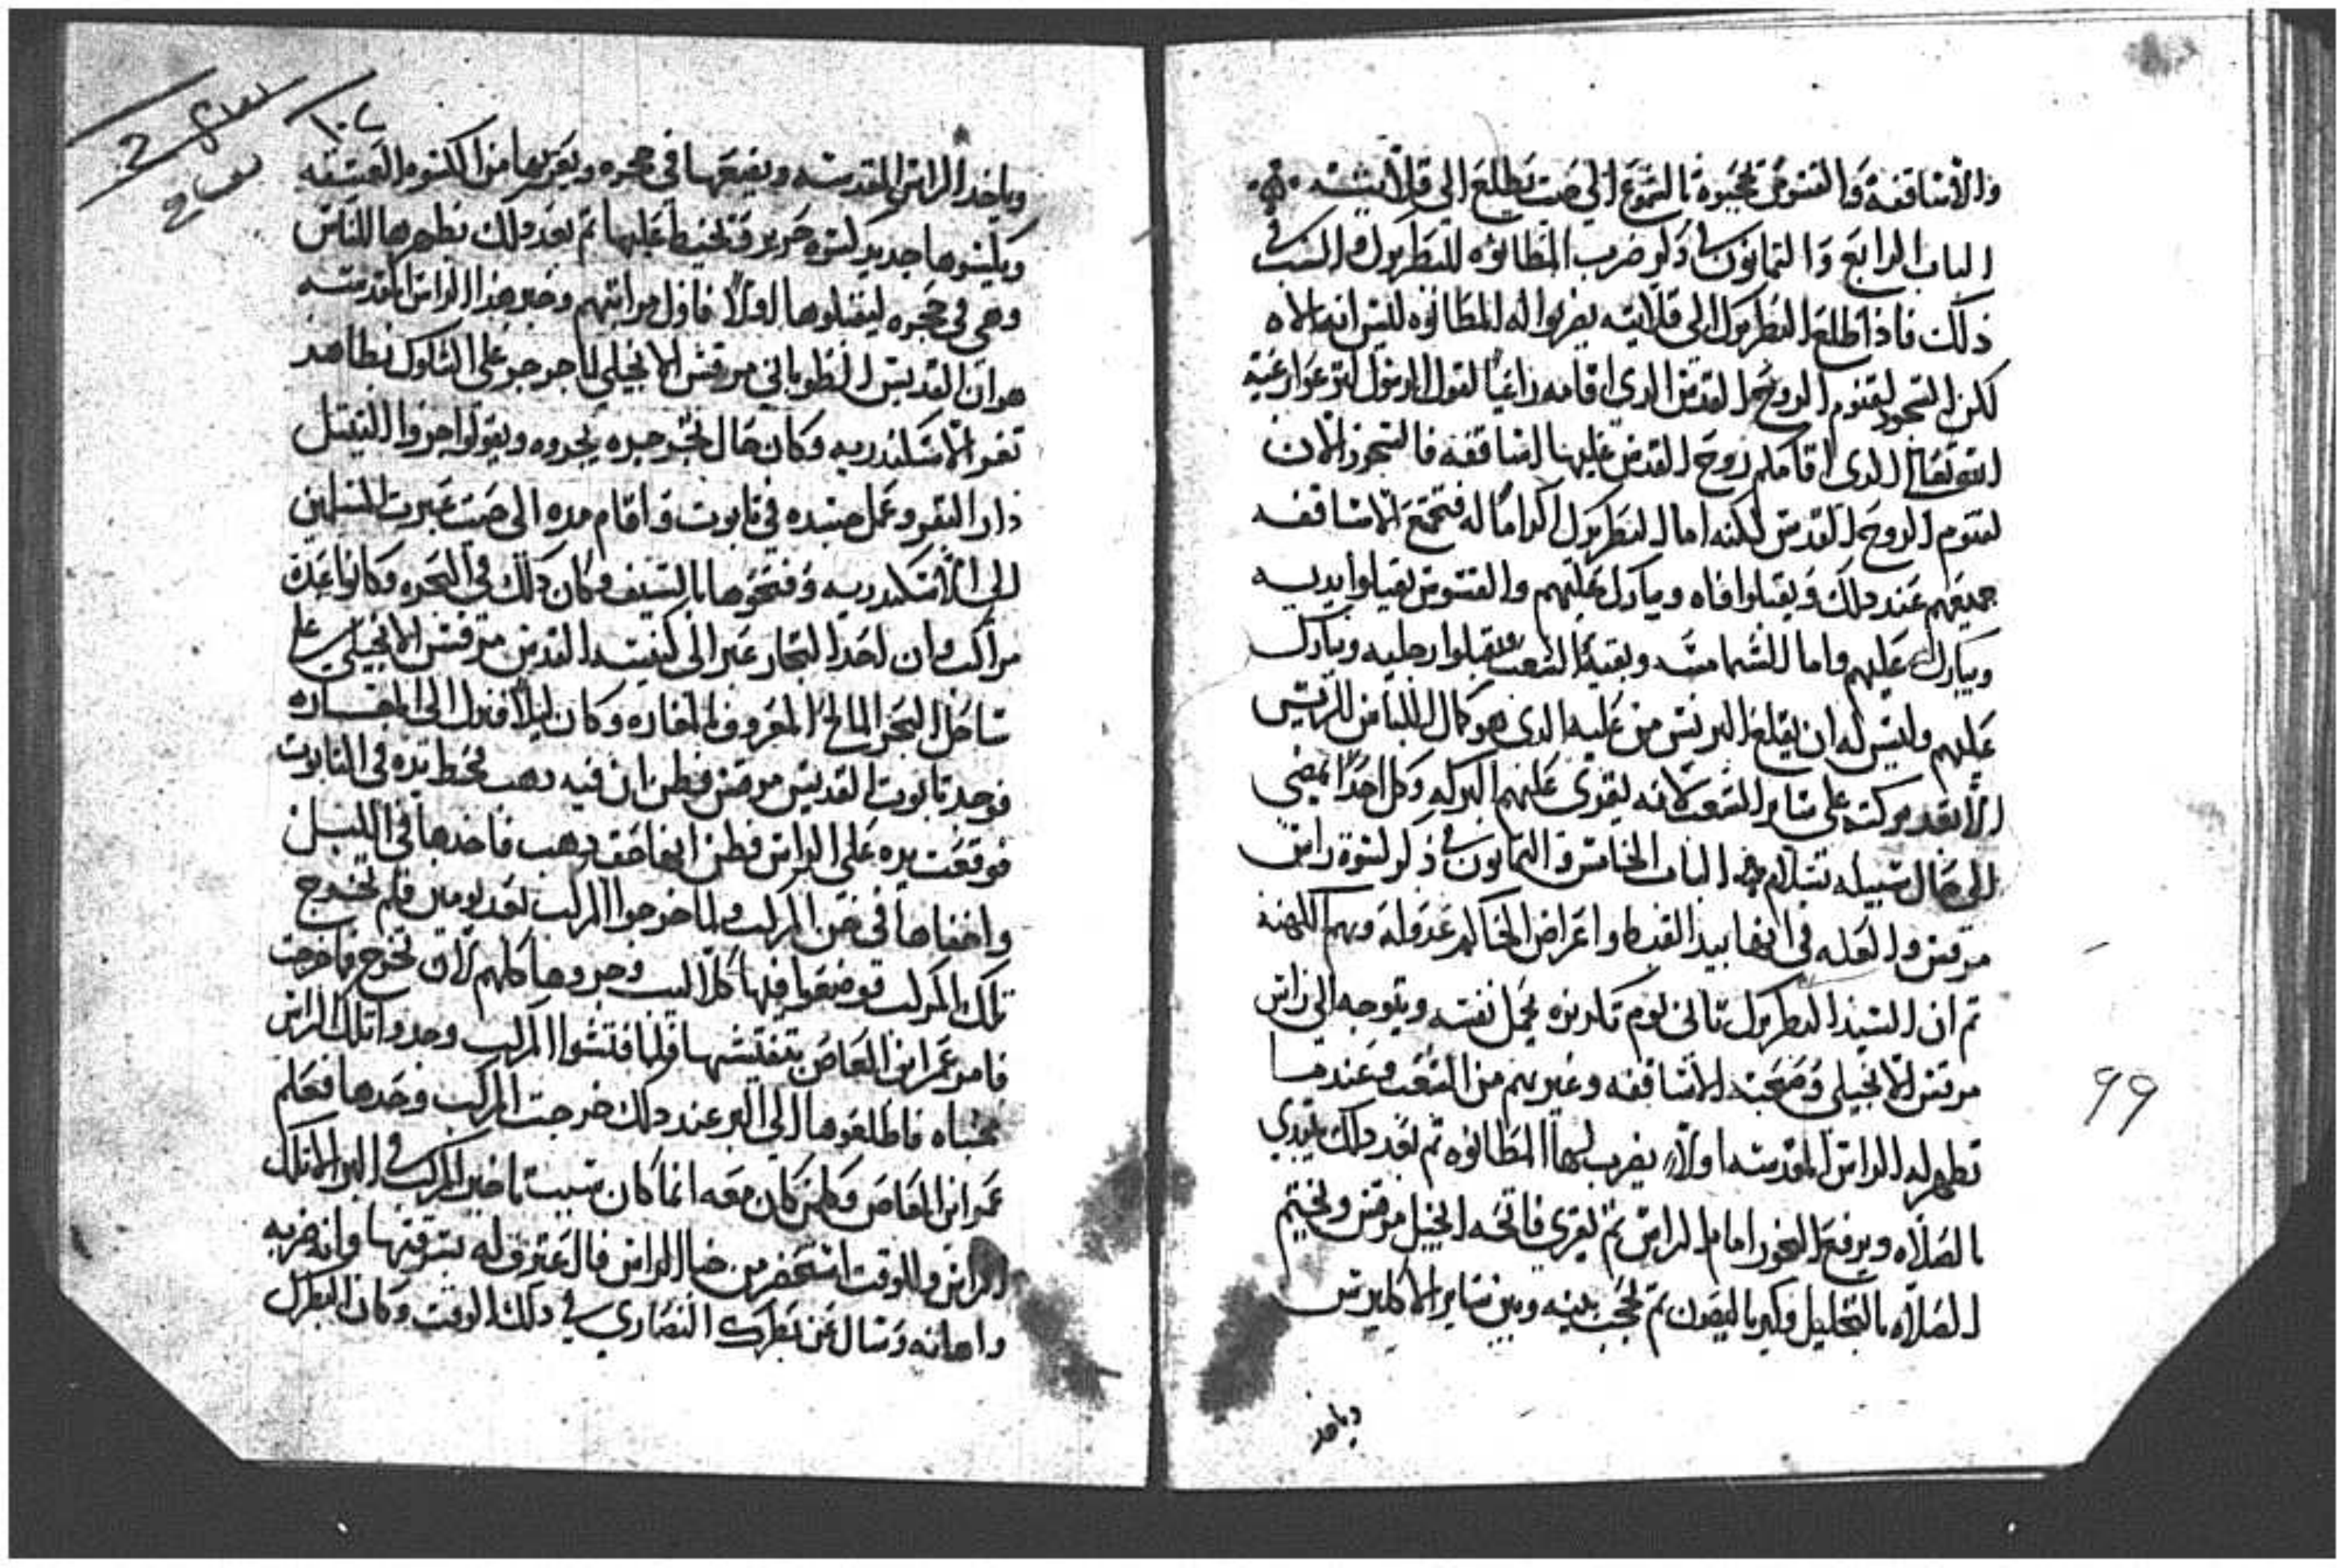 والاساقفة والقسوس تحجبوه بالشموع الي حيت يطلع الي قلايته
الباب الرابع والتمانون في ذكر ضرب المطانوه للبطريرك والسبب في
ذلك فاذا طلع البطريرك الي قلايته يضربوا له المطانوه ليس انه الاه
لكن السجود لقنوم الروح القدس الدي اقامه الرسول
الدي اقامكم روح القدس عليها اساقفه فالسجود الان
لقنوم الروح القدس لكنه اما البطريرك اكراما له فتجتمع الاساقفه
جميعهم عند دلك ويقبلوا فاه ويبارك عليهم والقسوس يقبلوا يديه
ويبارك عليهم واما الشمامسه وبقية الشعب يقبلوا رجليه ويبارك
عليهم وليس له ان يقلع البرنس من عليه الدي هو كمال اللباس للرييس
الا بعد بركته علي ساير الشعب لانه يقري عليهم البركه وكل احدا يمضي
الي حال سبيله بسلام الباب الخامس والتمانون في ذكر كسوة راس
مرقس والعله في اخفا هم الكهنه
تم ان السيد البطريرك تاني يوم تكريزه يحمل نفسه ويتوجه الي راس
مرقس الانجيلي وصحبته الاساقفه وغيرهم من الشعب وعندما
تظهر له الراس المقدسه اولا يضرب لها المطانوه تم بعد دلك يبتدي
بالصلاه ويرفع البخور امام الراس تم يقري فاتحة انجيل مرقس ويختم
الصلاه بالتحليل وكيرياليصون تم يحجب بينه وبين ساير الاكليرس
وياخد
99
١٠٢
وياخد الراس المقدسه ويضعها في حجره ويعريها من الكسوه العتيقه
ويلبسوها جديد كسوه حرير وتخيط عليها تم بعد دلك يظهرها للناس
وهي في حجره ليقبلوها اولا فاول مراتبهم وخبر هدا الراس المقدسه
هو ان القديس الطوباني مرقس الانجيلي لما جرجر علي الشوك بظاهر
تغر الاسكندريه وكان حال يجروه ويقولوا جروا التيتل
دار البقر وعمل جسده في تابوت واقام مده الي حيت عبرت المسلمين
الي الاسكندريه وفتحوها بالسيف وكان دلك في البحره وكانوا عدة
مراكب وان احد البحار عبر الي كنيسة القديس مرقس الانجيلي علي
ساحل البحر المالح المعروف بالمغاره وكان ليلا فنزل الي المغاره
فوجد تابوت القديس مرقس فظن ان فيه دهب فحط يده في التابوت
فوقعت يده علي الراس فظن دهب فاخدها في الليل
واخفاها في خن المركب ولما خرجوا المراكب بعد يومين فلم تخرج
تلك المركب فوضعوا فيها كلاليب وجروها كلهم لان تخرج فما خرجت
فامر عمر ابن العاص بتفتيشها فلما فتشوا المركب وجدوا تلك الراس
مخباه فاطلعوها الي البر عند دلك خرجت المركب وحدها فعلم
عمر ابن العاص وكلمن كان معه انما كان سبب تاخير المركب في البر الا تلك
الراس وللوقت استحضر من خبا الراس فاعترف له بسرقتها وانه ضربه
واهانه وسال عن بطرك النصاري في دلك الوقت وكان البطرك